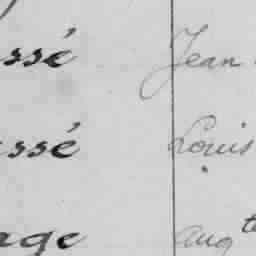 ssé Jean
ssé Louis
age Aug te